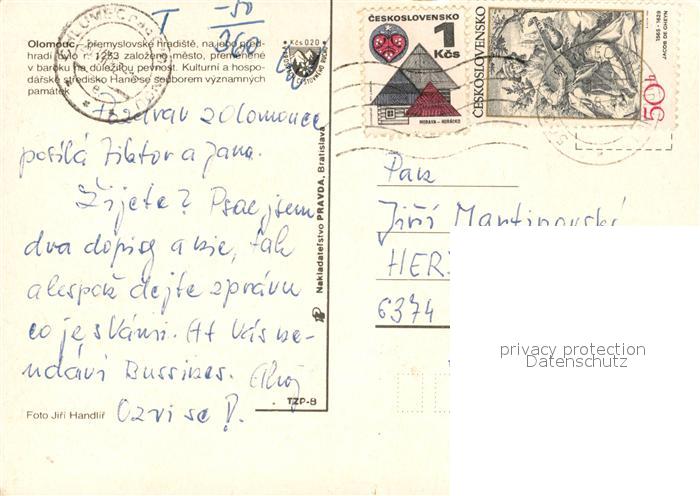 T -50
360
Olomouc – přemyslovské hradiště, na jeho
hradí bylo r. 1253 založeno město, přeměněné
v baroku na důležitou pevnost. Kulturní a hospo-
dářské středisko Hané se souborem významných
památek
Kčs 0,20
ČESKOSLOVENSKO
1 Kčs
MORAVA - HORÁCKO
ČESKOSLOVENSKO
50 h
1565-1629
JACOB DE GHEYN
Pozdrav z Olomouce
posílá Viktor a Jana.
Žijete? Psal jsem
dva dopisy a nic, tak
alespoň dejte zprávu
co je s Vámi. Ať Vás ne-
udáví Bussines. Ahoj
Ozvi se!
Foto Jiří Handlíř
TZP-B
Nakladatelství PRAVDA, Bratislava
Pan
Jiří Martinovský
HER
6374
privacy protection
Datenschutz